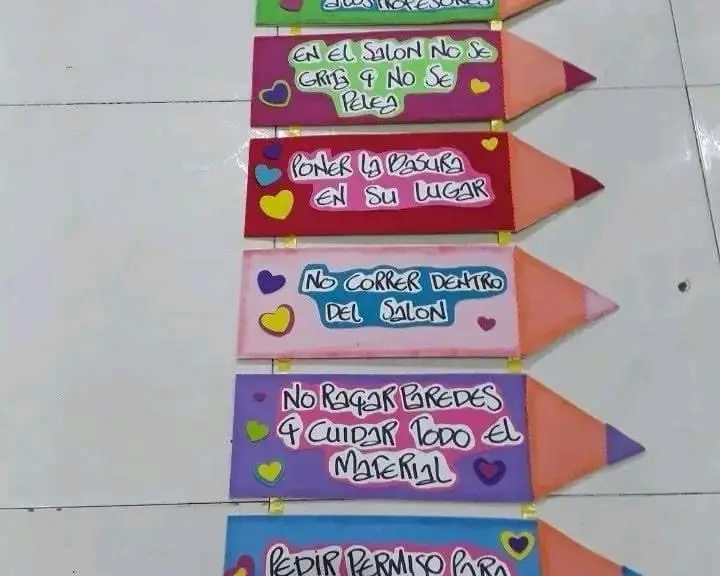 A LOS PROFESORES
EN EL SALON NO SE
GRITA Y NO SE
PELEA
PONER LA BASURA
EN SU LUGAR
NO CORRER DENTRO
DEL SALON
NO RAYAR PAREDES
Y CUIDAR TODO EL
MATERIAL
PEDIR PERMISO PARA